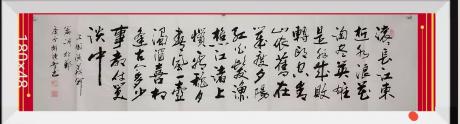 滚滚长江东
逝水浪花
淘尽英雄
是非成败
转头空青
山依旧在
几度夕阳
红白发渔
樵江渚上
惯看秋月
春风一壶
浊酒喜相
逢古今多少
事都付笑
谈中
180x48